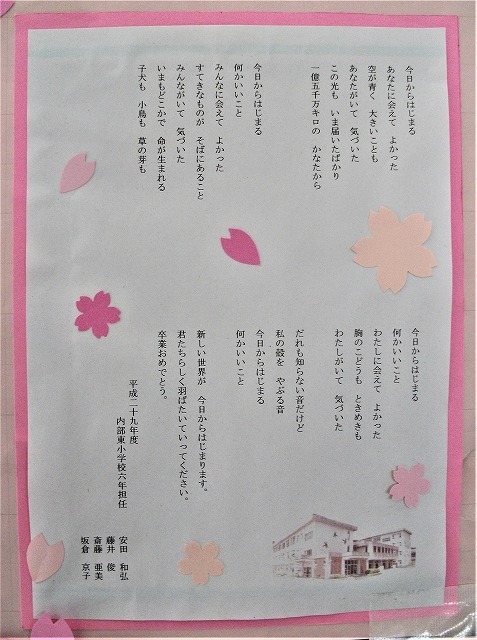 今日からはじまる
あなたに会えて よかった
空が青く 大きいことも
あなたがいて 気づいた
この光も いま届いたばかり
一億五千万キロの かなたから
今日からはじまる
何かいいこと
みんなに会えて よかった
すてきなものが そばにあること
みんながいて 気づいた
いまもどこかで 命が生まれる
子犬も 小鳥も 草の芽も
今日からはじまる
何かいいこと
わたしに会えて よかった
胸のこどうも ときめきも
わたしがいて 気づいた
だれも知らない音だけど
私の殻を やぶる音
今日からはじまる
何かいいこと
新しい世界が 今日からはじまります。
君たちらしく羽ばたいていってください。
卒業おめでとう。
平成二十九年度
内部東小学校六年担任
安田 和弘
藤井 俊
斎藤 亜美
坂倉 京子